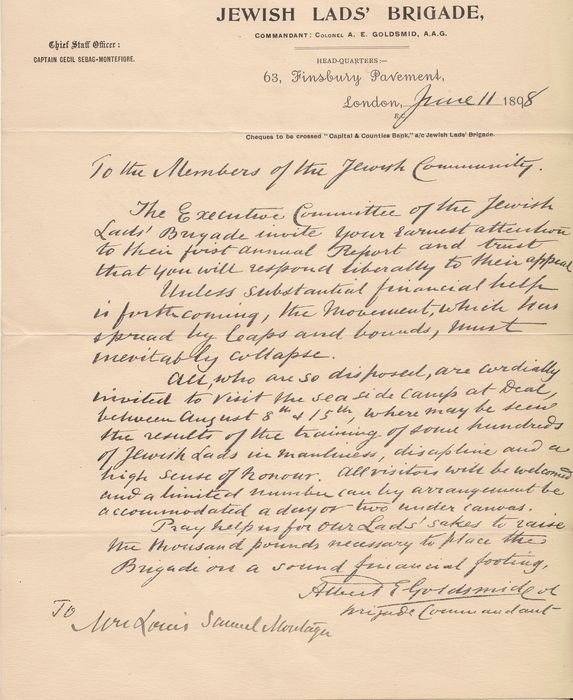 JEWISH LADS' BRIGADE,
COMMANDANT: COLONEL A. E. GOLDSMID, A.A.G.
Chief Staff Officer:
CAPTAIN CECIL SEBAG-MONTEFIORE.
HEAD-QUARTERS:—
63, Finsbury Pavement,
London, June 11 1898
E.C.
Cheques to be crossed "Capital & Counties Bank," a/c Jewish Lads' Brigade.
To the Members of the Jewish Community.
The Executive Committee of the Jewish
Lads' Brigade invite your earnest attention
to their first annual Report and trust
that you will respond liberally to their appeal
Unless substantial financial help
is forthcoming, the Movement, which has
spread by leaps and bounds, must
inevitably collapse.
All, who are so disposed, are cordially
invited to visit the seaside camp at Deal,
between August 8th & 15th, where may be seen
the results of the training of some hundreds
of Jewish Lads in manliness, discipline and a
high sense of honour. All visitors will be welcomed
and a limited number can by arrangement be
accommodated a day or two under canvas.
Pray help us for our Lads' sakes to raise
the thousand pounds necessary to place the
Brigade on a sound financial footing.
Albert E Goldsmid Col
Brigade Commandant
To
Mrs Louis Samuel Montagu